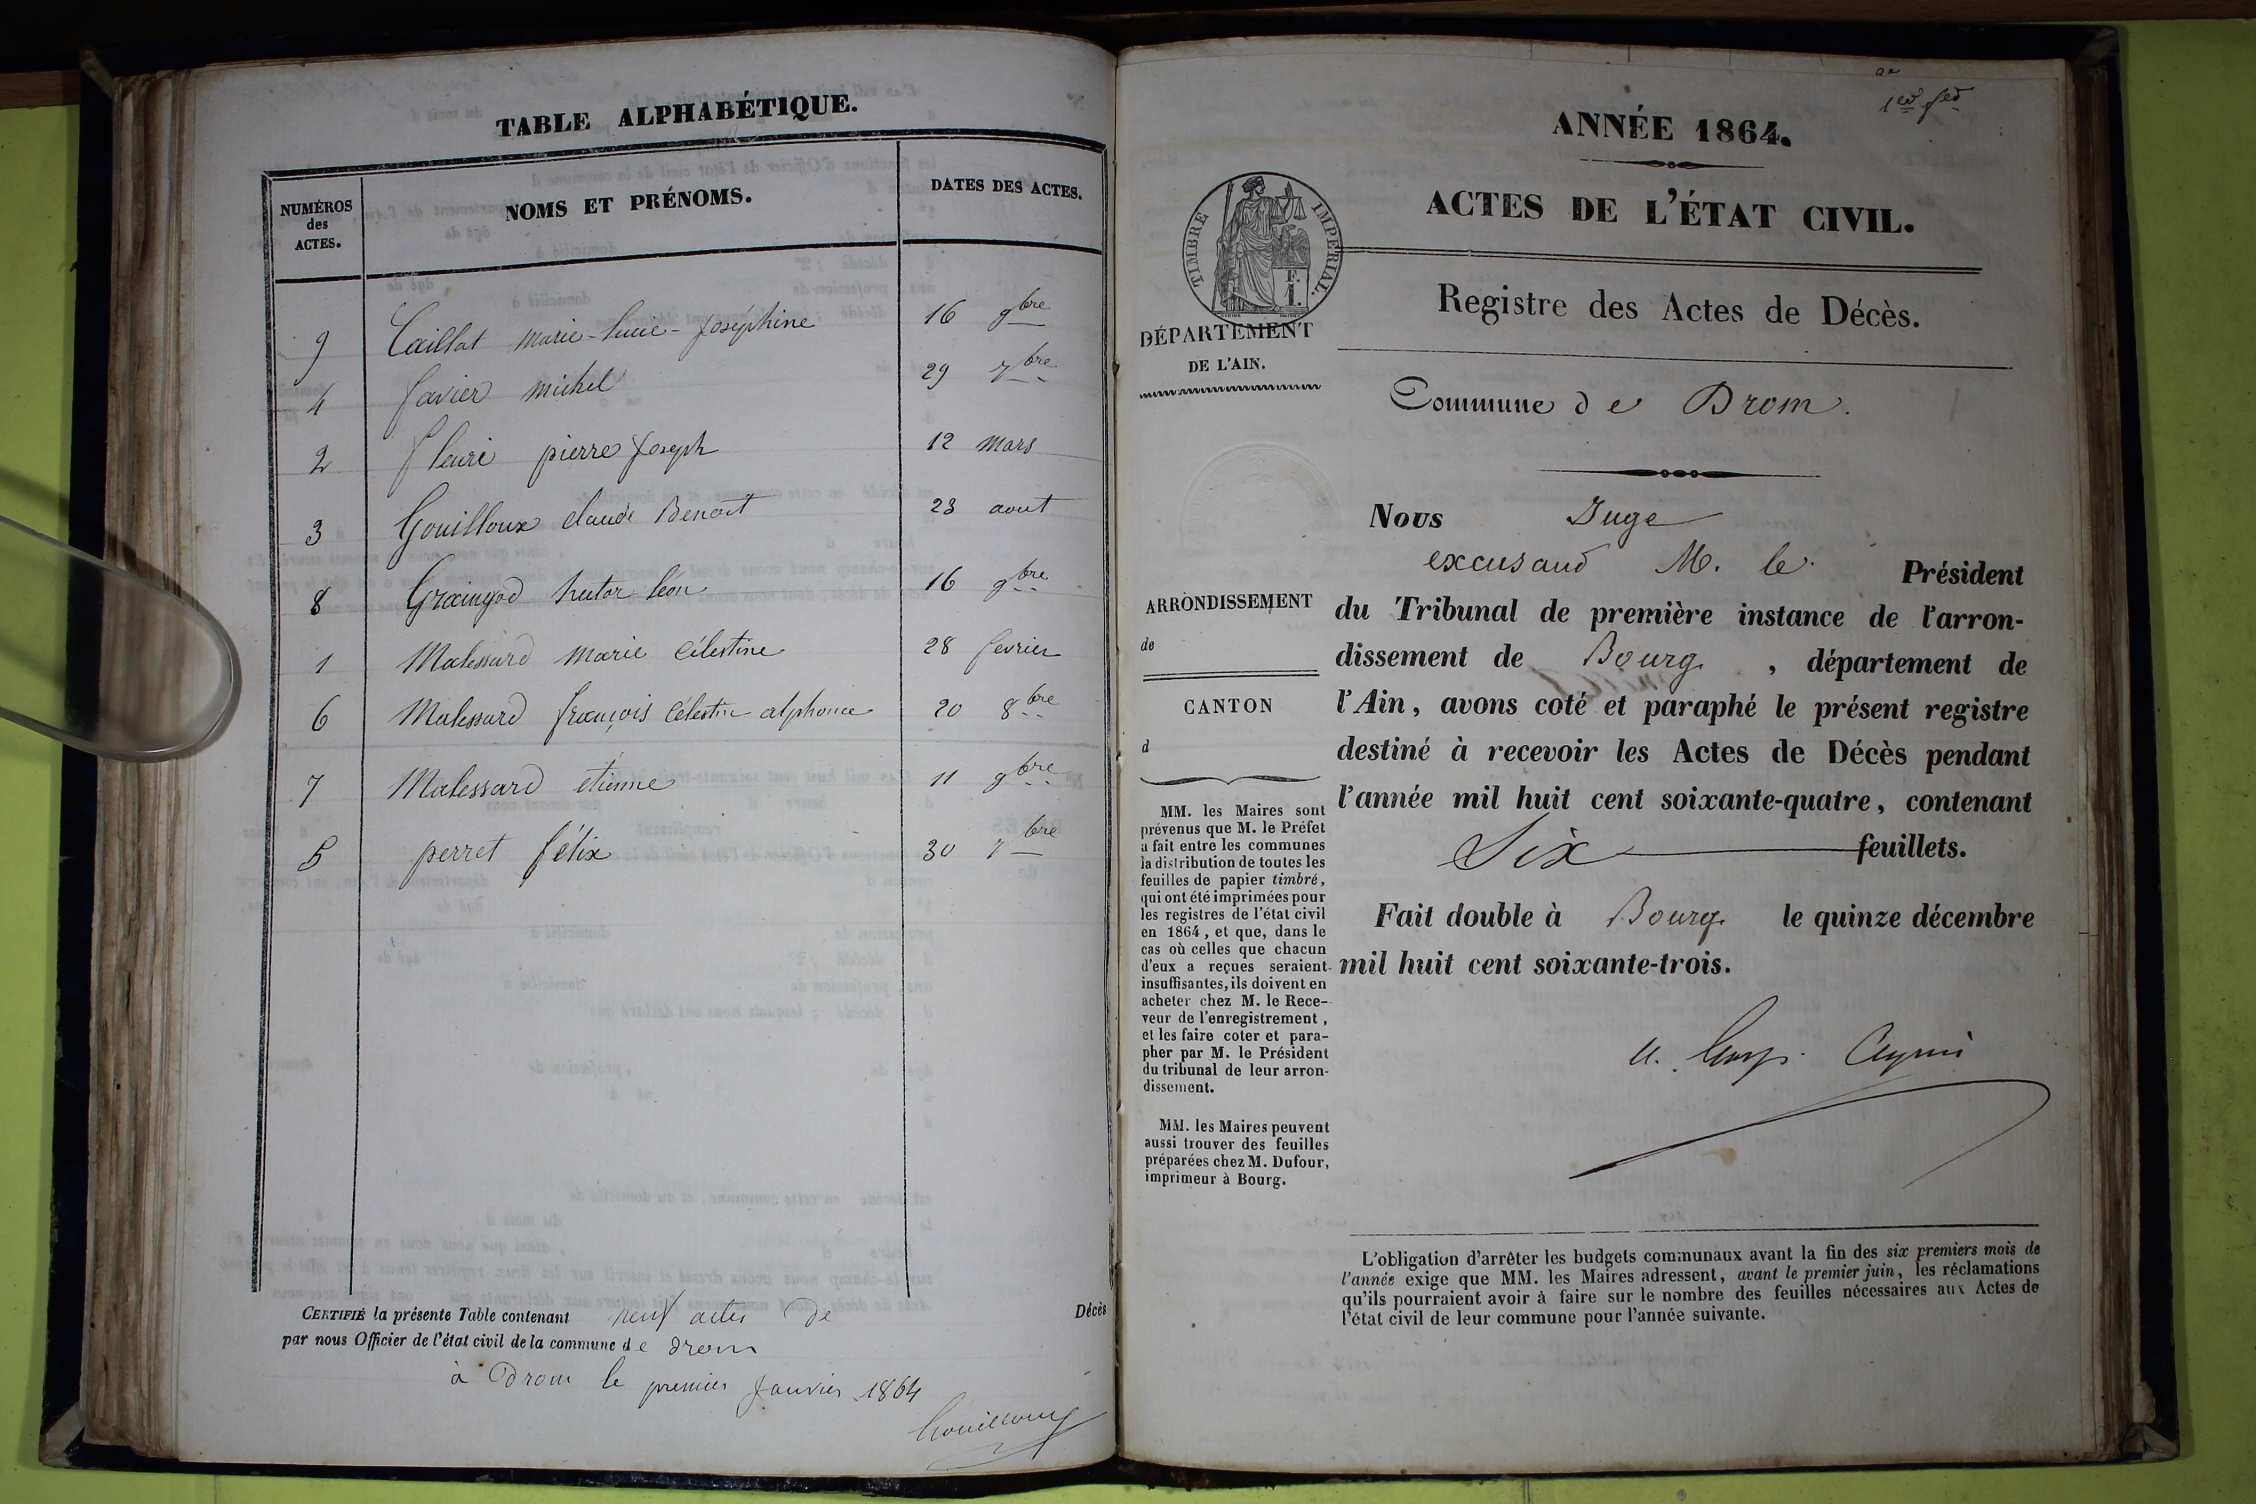 TABLE ALPHABÉTIQUE.
NUMÉROS des ACTES. NOMS ET PRÉNOMS. DATES DES ACTES.
9 Caillat marie-lucie-joséphine 16 9bre
4 favier michel 29 7bre
2 fleuri pierre joseph 12 mars
3 Gouilloux claude Benoit 23 aout
8 léon 16 9bre
1 Malessard marie célestine 28 fevrier
6 Malessard françois célestin alphonce 20 8bre
7 Malessard etienne 11 9bre
5 perret félix 30 7bre
CERTIFIÉ la présente Table contenant neuf actes de Décès
par nous Officier de l'état civil de la commune de drom
à Drom le premier janvier 1864
Gouilloux
1er
ANNÉE 1864.
ACTES DE L'ÉTAT CIVIL.
TIMBRE IMPÉRIAL.
F.
1.
DÉPARTEMENT
DE L'AIN.
Registre des Actes de Décès.
Commune de Drom.
ARRONDISSEMENT
de
CANTON
d
MM. les Maires sont
prévenus que M. le Préfet
a fait entre les communes
la distribution de toutes les
feuilles de papier timbré,
qui ont été imprimées pour
les registres de l'état civil
en 1864, et que, dans le
cas où celles que chacun
d'eux a reçues seraient
insuffisantes, ils doivent en
acheter chez M. le Rece-
veur de l'enregistrement,
et les faire coter et para-
pher par M. le Président
du tribunal de leur arron-
dissement.
MM. les Maires peuvent
aussi trouver des feuilles
préparées chez M. Dufour,
imprimeur à Bourg.
Nous Juge
excusand M. le Président
du Tribunal de première instance de l'arron-
dissement de Bourg, département de
l'Ain, avons coté et paraphé le présent registre
destiné à recevoir les Actes de Décès pendant
l'année mil huit cent soixante-quatre, contenant
Six feuillets.
Fait double à Bourg le quinze décembre
mil huit cent soixante-trois.
L'obligation d'arrêter les budgets communaux avant la fin des six premiers mois de
l'année exige que MM. les Maires adressent, avant le premier juin, les réclamations
qu'ils pourraient avoir à faire sur le nombre des feuilles nécessaires aux Actes de
l'état civil de leur commune pour l'année suivante.